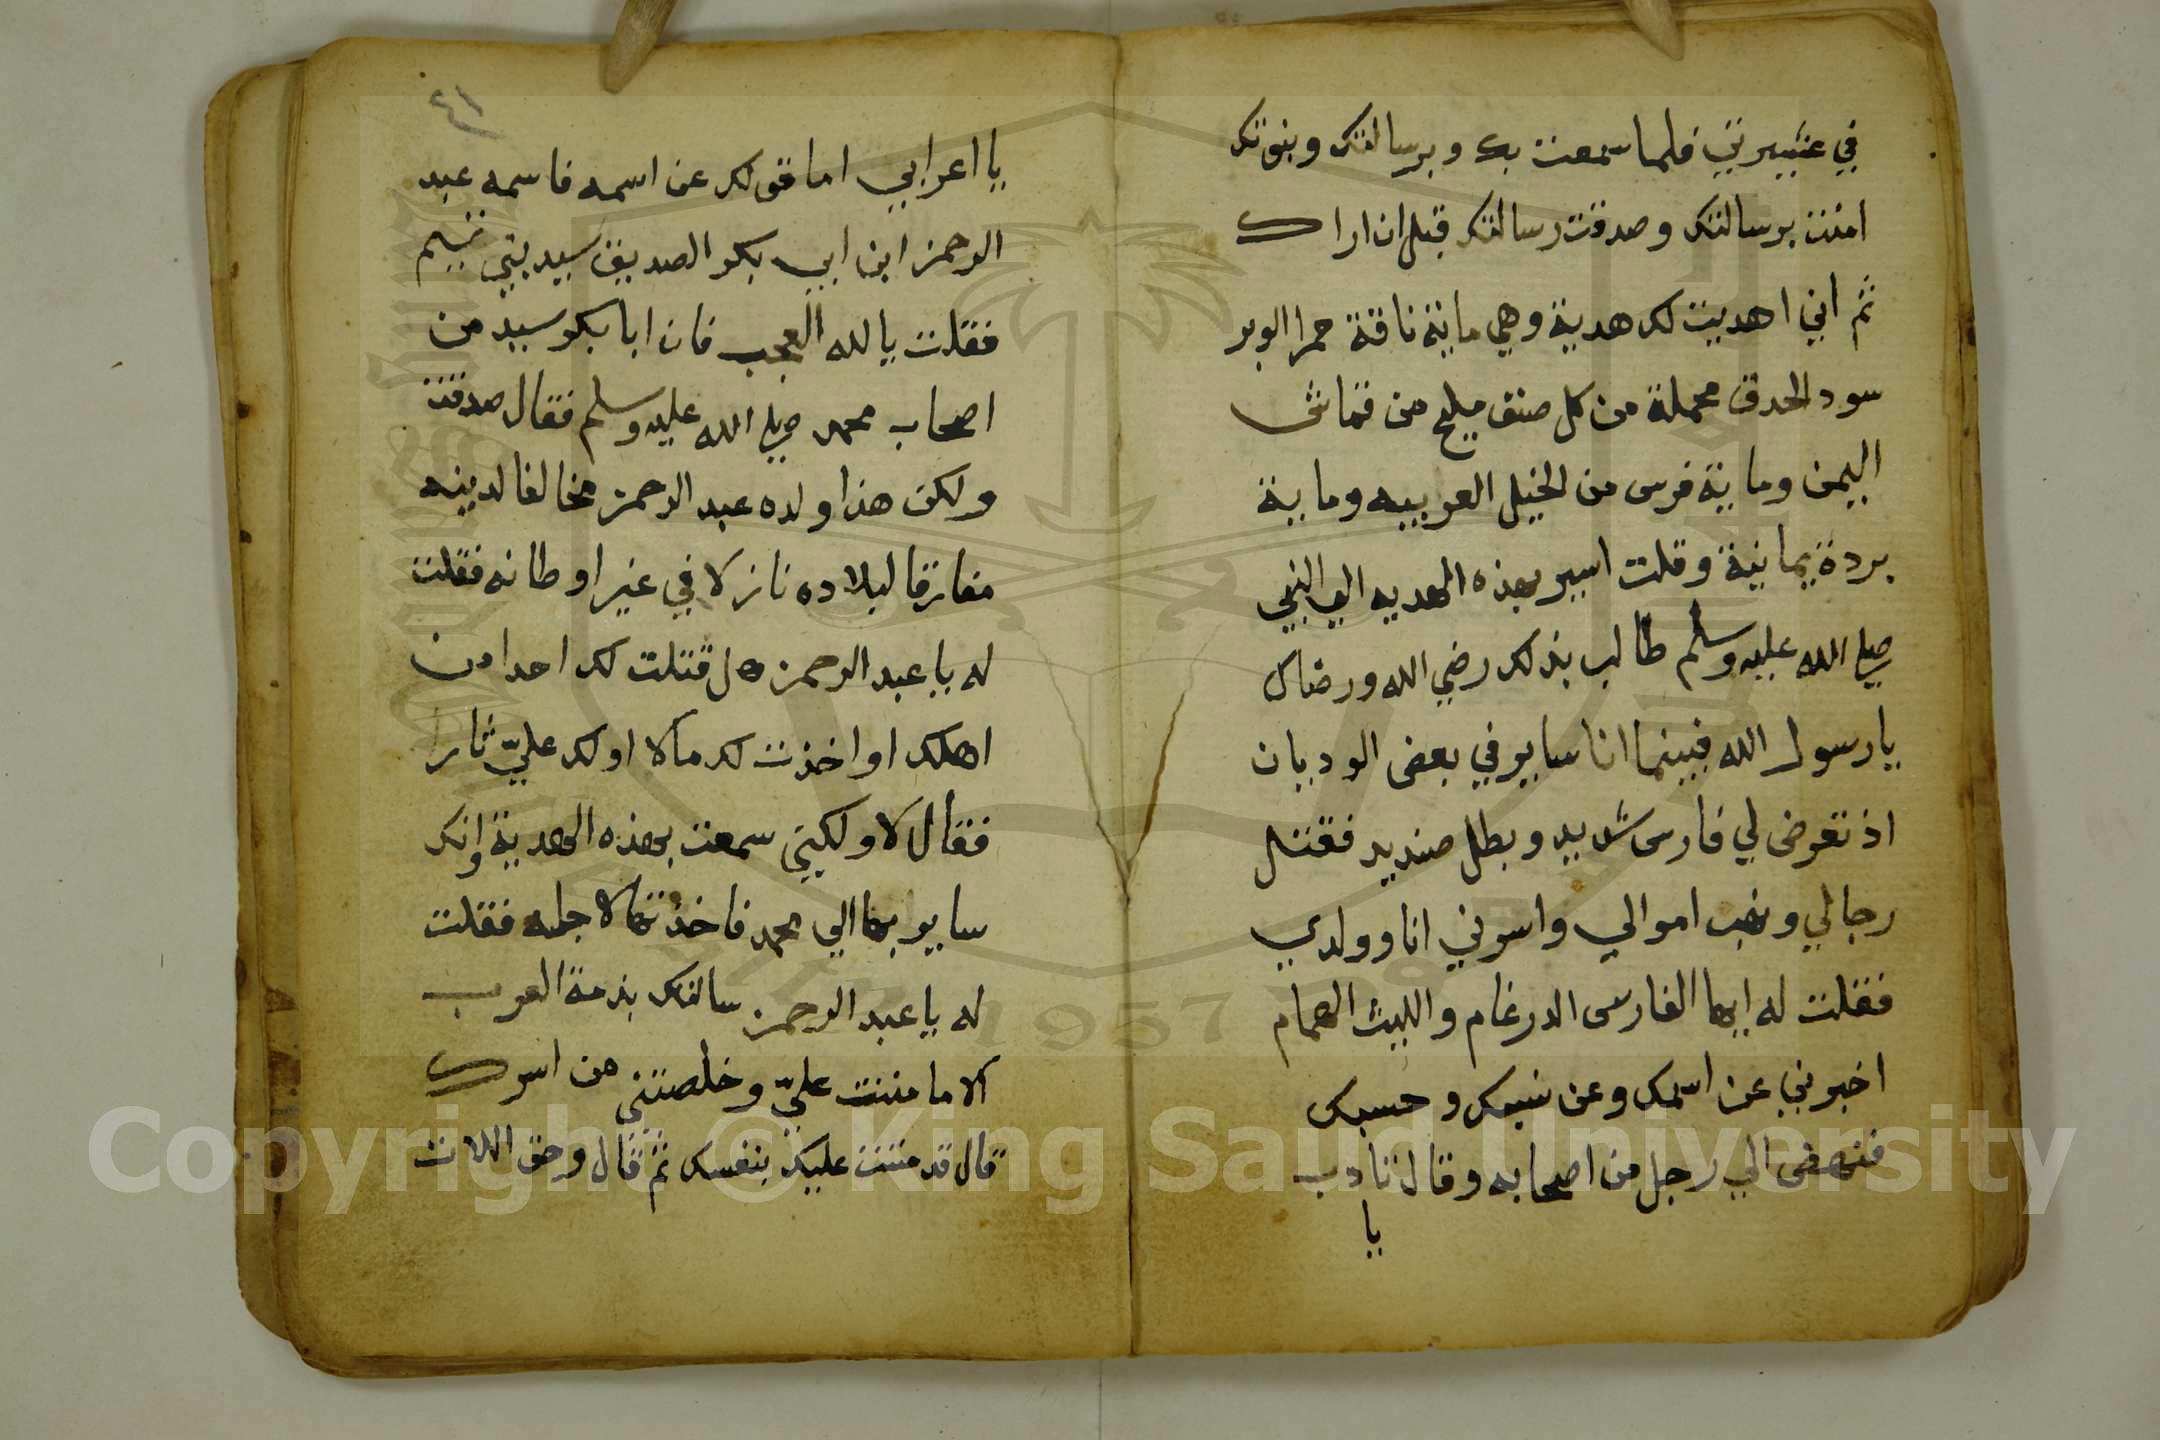 في عشيرتي فلما سمعت بك وبرسالتك وبنوتك
امنت برسالتك وصدقت رسالتك قبل ان اراك
ثم اني اهديت لك هدية وهي ماية ناقة حمرا الوبر
سود الحدق محملة من كل صنف مليح من قماش
اليمن وماية فرس من الخيل العربيه وماية
بردة يمانية وقلت اسير بهذه الهديه الي النبي
صلي الله عليه وسلم طالب بذلك رضي الله ورضاك
يا رسول الله فبينما انا ساير في بعض الوديان
اذ تعرض لي فارس شديد وبطل صنديد فقتل
رجالي ونهب اموالي واسرني انا وولدي
فقلت له ايها الفارس الدرغام والليث الهمام
اخبرني عن اسمك وعن نسبك وحسبك
فنهض الي رجل من اصحابه وقال تادب
يا
٤١
يا اعرابي اما قولك عن اسمه فاسمه عبد
الرحمن ابن ابي بكر الصديق سيد بني تيم
فقلت يا لله العجب فان ابا بكر سيد من
اصحاب محمد صلي الله عليه وسلم فقال صدقت
ولكن هذا ولده عبد الرحمن مخالفا لدينه
مفارقا لبلاده نازلا في غير اوطانه فقلت
له يا عبد الرحمن هل قتلت لك احدا من
اهلك او اخذت لك مالا او لك عليّ ثارا
فقال لا ولكني سمعت بهذه الهدية وانك
ساير بها الي محمد فاخذتها لاجله فقلت
له يا عبد الرحمن سالتك بذمة العرب
الا ما مننت عليّ وخلصتني من اسرك
قال قد مننت عليك بنفسك ثم قال وحق اللات
Copyright © King Saud University
1957